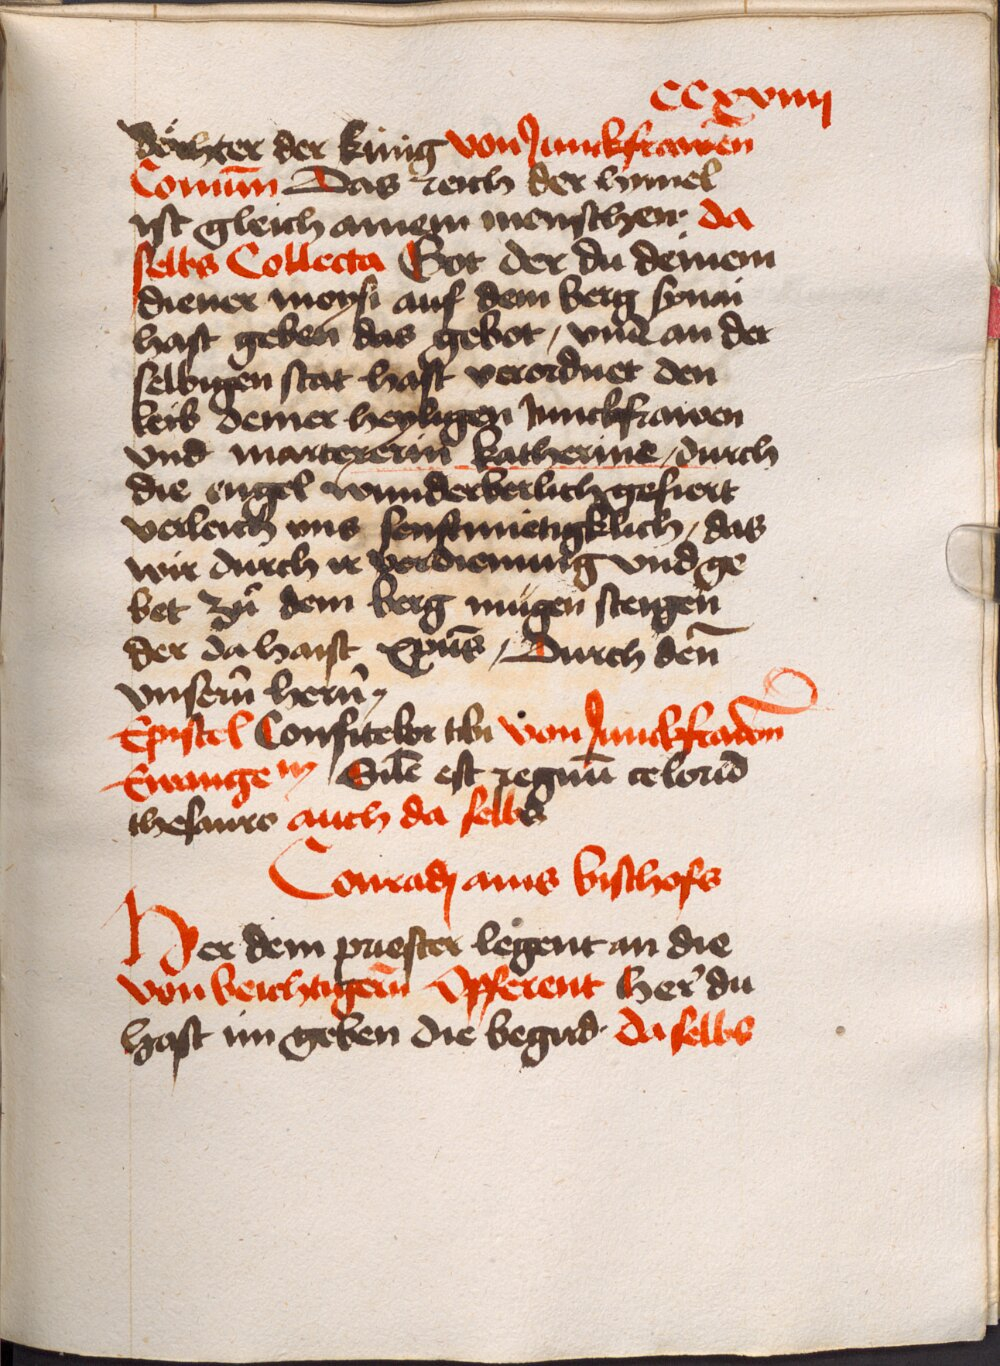 CCxviiij
döchter der künig von Junckfrawen
Comūn Das reich der himel
ist gleich ainem menschen da
selbs Collecta Got der du deinem
diener moysi auf dem berg synai
hast geben das gebot / vnd an der
selbigen stat hast verordnet den
leib deiner heyligen Junckfrawen
vnd martererin katherine / durch
die engel wunderberlich gefiert
verleich vns senftmietigklich / das
wir durch ir verdienung vnd ge
bet zů dem berg mügen steigen
der da haist xp̄us / Durch den̄
vnsern̄ hern̄
Epistel Confitebor tibi von Junckfrawen
Ewange Sil̄e est regnū celorū
thesauro auch da selbs
Conradj ains bischofs
Her dem priester legent an die
von beichtigern̄ Opferent her̄ du
hast im geben die begird da selbs